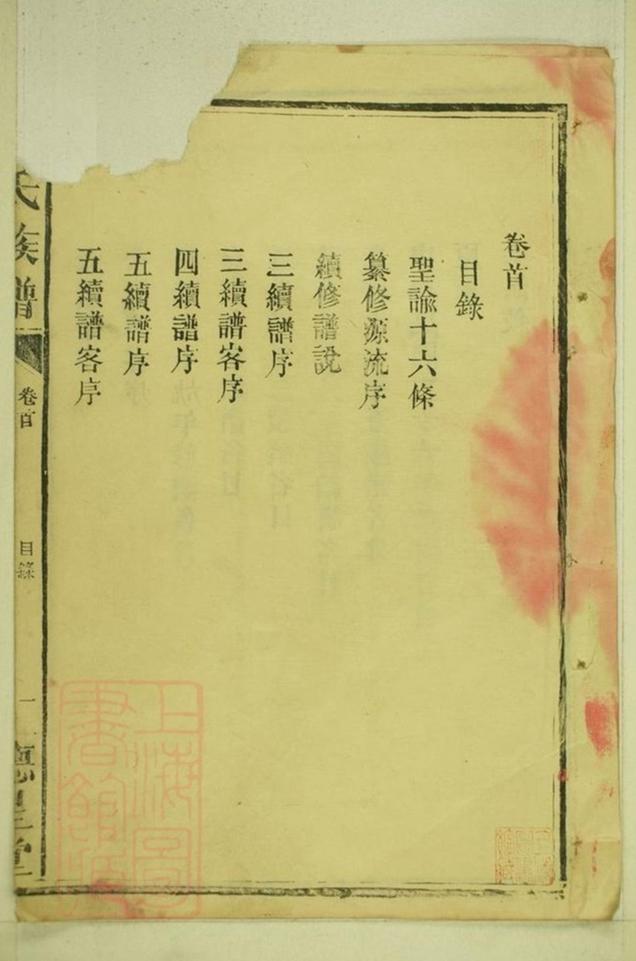 卷首
目錄
聖諭十六條
纂修源流序
續修譜說
三續譜序
三續譜客序
四續譜序
五續譜序
五續譜客序
氏族譜
卷首
目錄
一
堂
上海圖書館藏